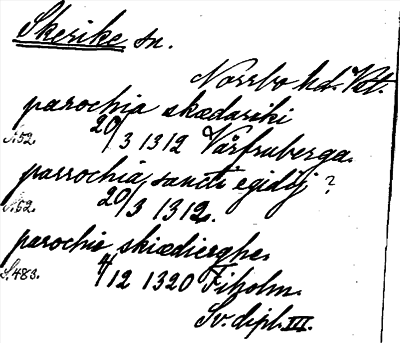 Skerike sn.
Norrbo hd. Vst.
parochia skædariki
s. 52. 20/3 1312 Vårfruberga.
parrochia sancti egidij ?
s. 62. 20/3 1312.
parochie skiædierghe.
s. 483. 4/12 1320 Fiholm.
Sv. dipl. III.